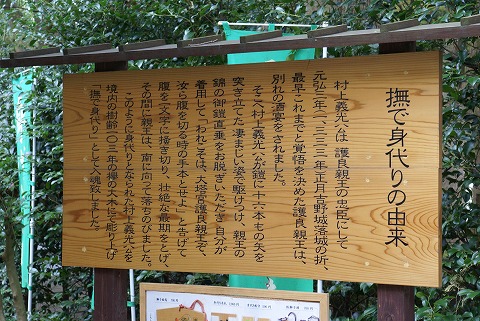 撫で身代りの由来
村上義光公は、護良親王の忠臣にして
元弘三年(一三三三)年正月吉野城落城の折、
最早これまでと覚悟を決めた護良親王は、
別れの酒宴をされました。
そこへ村上義光公が鎧に十六本もの矢を
突き立てた凄まじい姿で駆けつけ、親王の
錦の御鎧直垂をお脱ぎいただき、自分が
着用して「われこそは、大塔宮護良親王ぞ、
汝ら腹を切る時の手本とせよ」と告げて
腹を十文字に搔き切り、壮絶な最期をとげ、
その間に親王は、南に向って落ちのびました。
このような身代りとなられた村上義光公を
境内の樹齢一〇三年の欅の大木にて彫り上げ
「撫で身代り」として奉致しました。